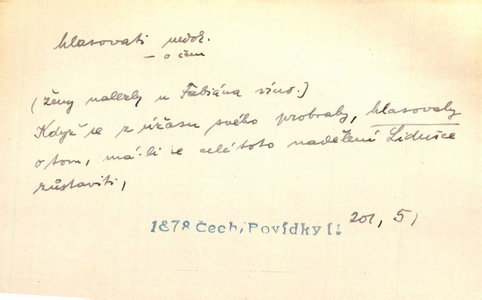 hlasovati nedok.
– o čem
(ženy nalezly u Fabiána víno.)
Když se z úžasu svého probraly, hlasovaly
o tom, má-li se celé toto nadělení Lidušce
zůstaviti,
1878 Čech, Povídky I!
201, 5,